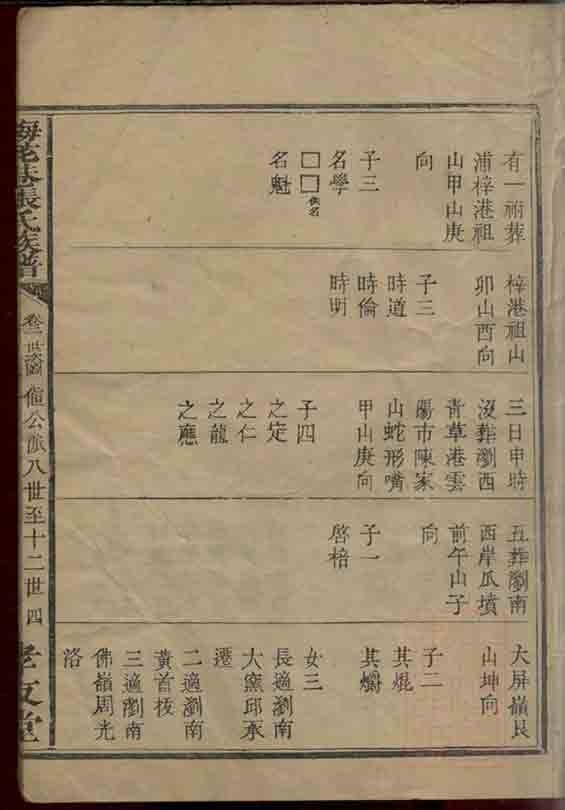 有一祔葬
浦梓港祖
山甲山庚
向
子三
名學
□□佚名
名魁
梓港祖山
卯山酉向
子三
時道
時倫
時明
三日申時
沒葬瀏西
青草港雲
陽市陳家
山蛇形嘴
甲山庚向
子四
之定
之仁
之龍
之應
五葬瀏南
西岸瓜墳
前午山子
向
子一
啓棓
大屏嶺艮
山坤向
子二
其焜
其爝
女三
長適瀏南
大窰邱承
遷
二適瀏南
黃首校
三適瀏南
佛嶺周光
洛
海花巷張氏族譜
卷三世圖
公派八世至十二世
四
孝友堂